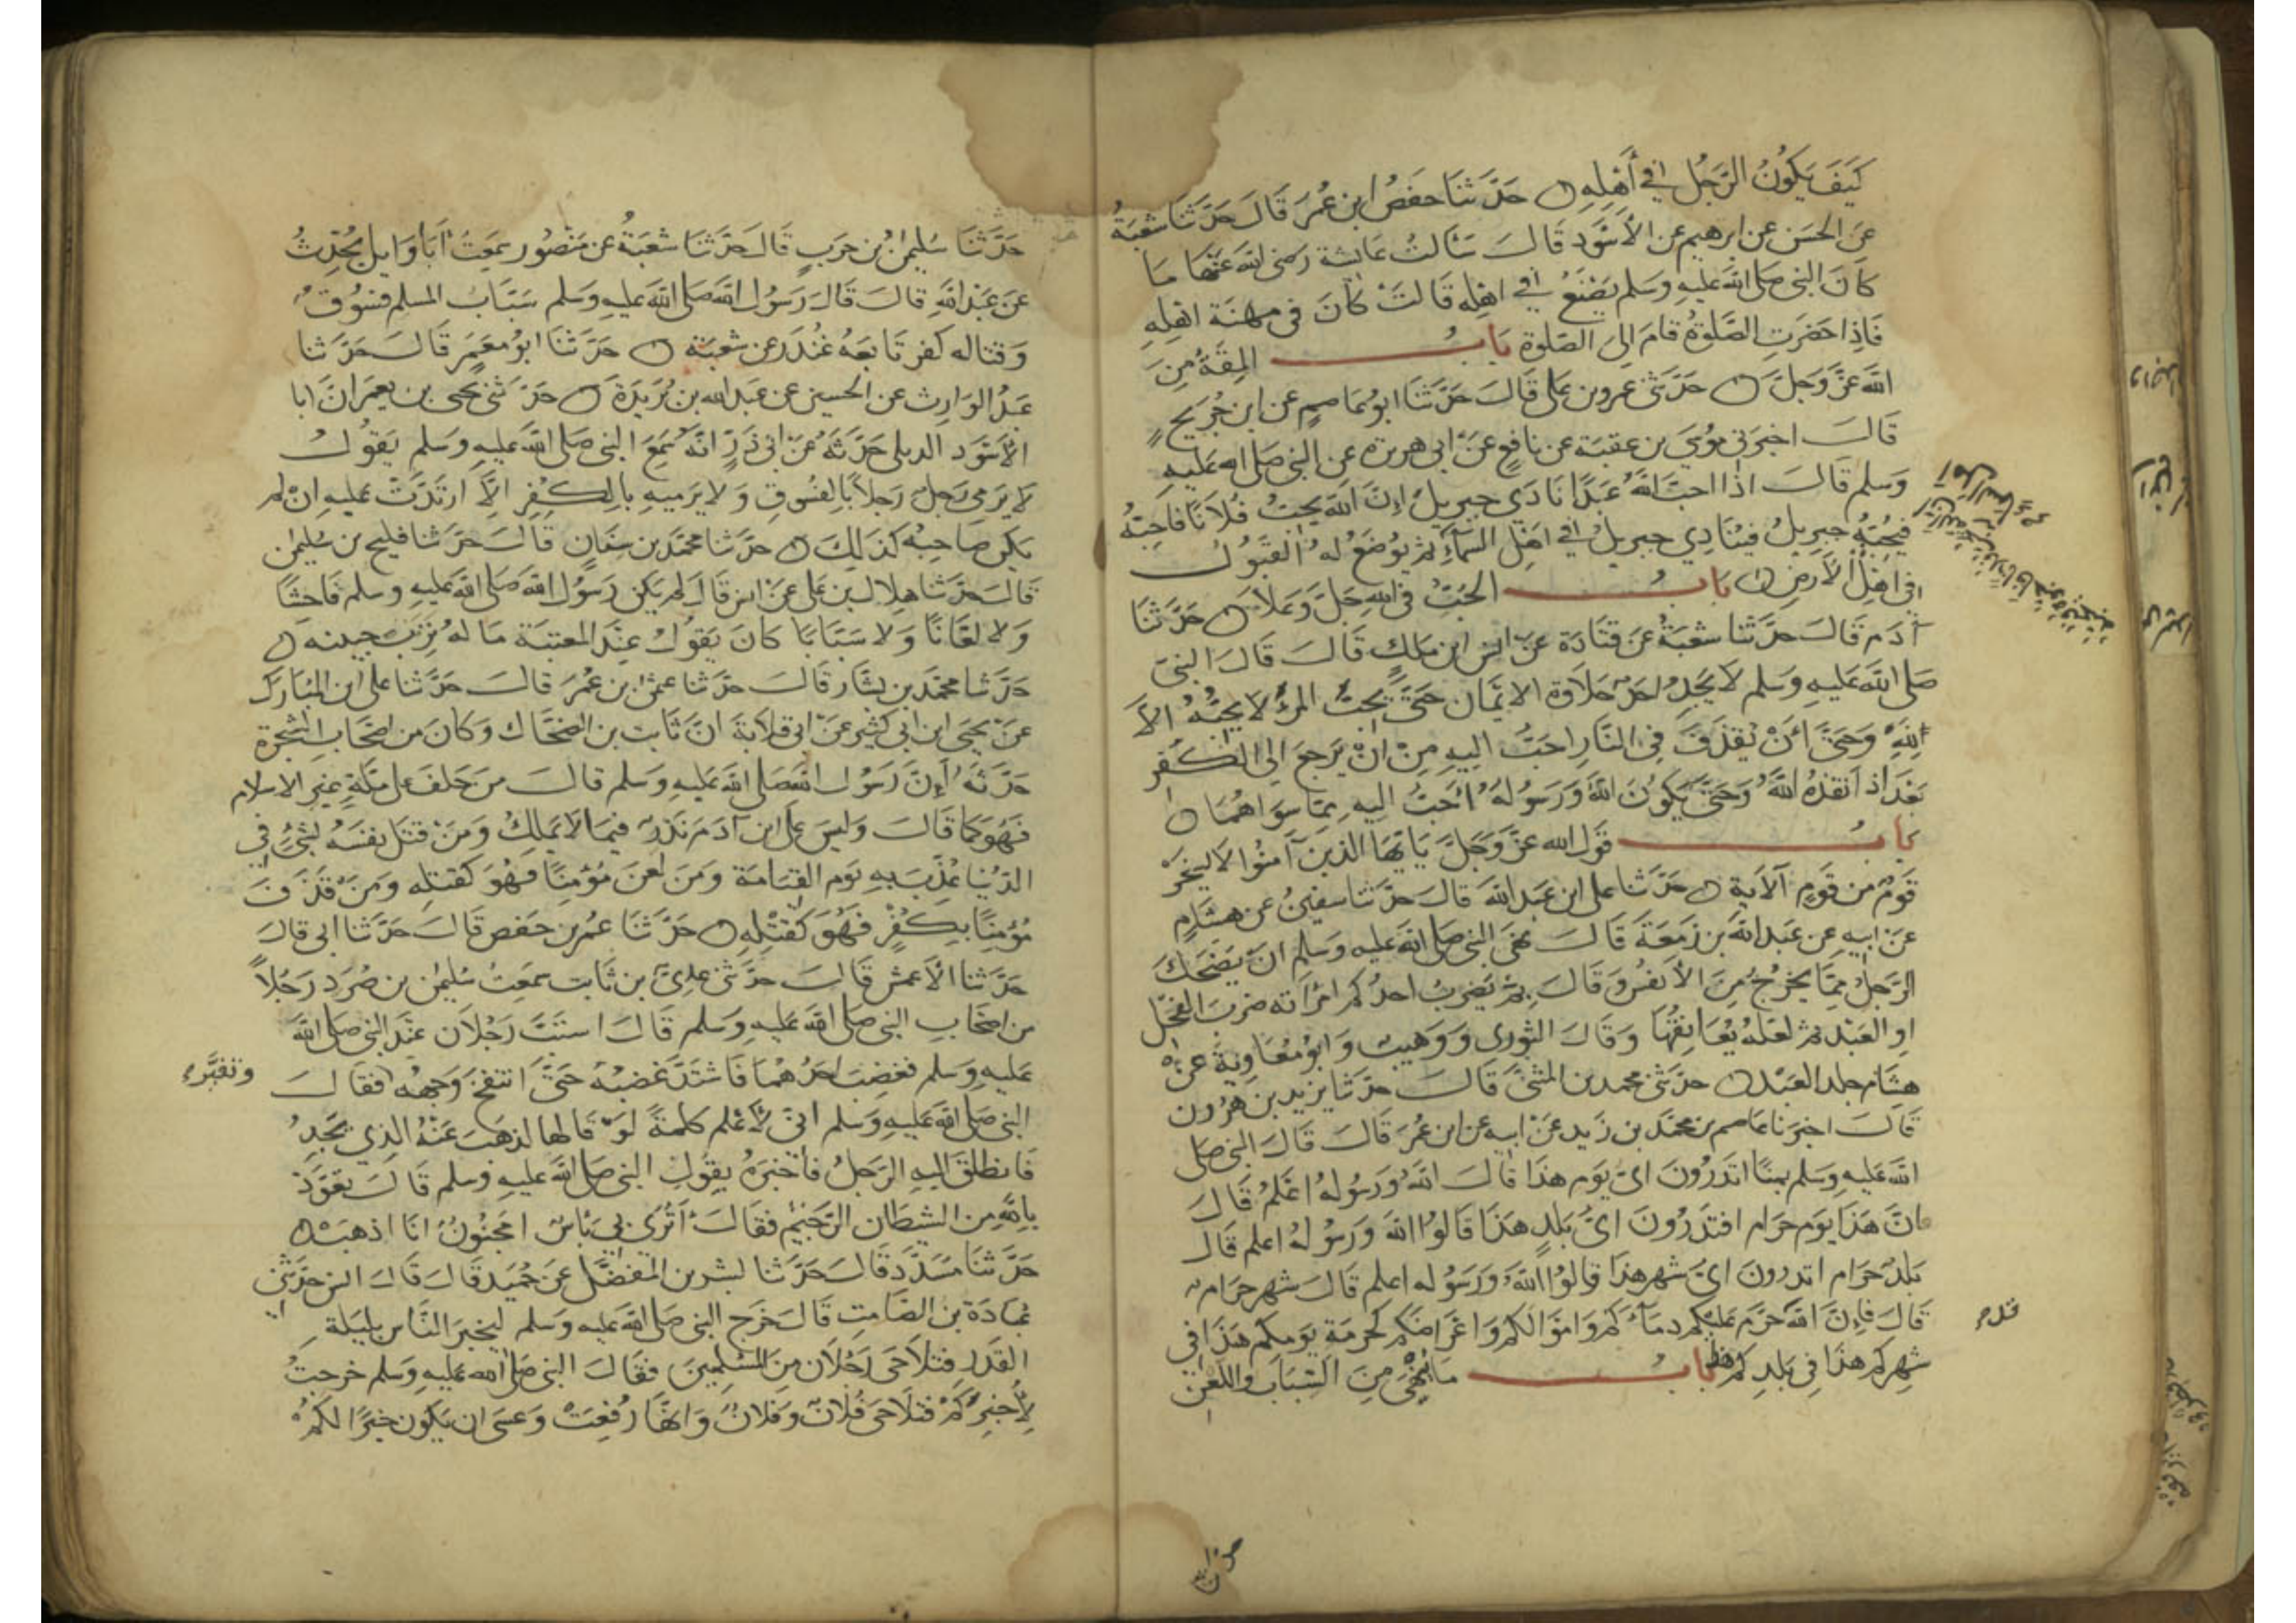 كَيفَ يَكُونُ الرَّجُل في أَهْلِهِ حَدَّثنَا حَفصُ ابن عُمَرَ قَالَ حَدَّثَنَا شُعْبَةُ
عَن الحَسَن عن ابرهيم عن الأَسْوَد قَالَ سَأَلتُ عَايشة رَضى الله عَنْهَا مَا
كَانَ النبى صَلى الله عَليهِ وَسَلم يَصْنَعُ في اهْلِه قَالَتْ كَانَ فى مهْنَة اهْلِهِ
فَاِذا حَضَرَتِ الصَّلوةُ قامَ الىَ الصّلوة بَابُ المِقَةُ مِنَ
الله عَزَّ وَجَلَّ حَدَّثنى عمرو بن عَلى قَالَ حَدَّثنَا ابُو عَاصِمٍ عن ابن جُرَيج
قَالَ اخبَرَنى مُوسَى بن عقبَة عن نافعٍ عَنْ ابى هريرة عن النبى صَلى الله عَليهِ
وَسَلم قَالَ اذا احبَّ اللهُ عَبْدًا نَادَي جبريلَ اِنَّ الله يحبُّ فُلَانًا فَاحِبّهُ
فيُحبّهُ جبريلُ فيُنَادِي جبريلُ في اهْل السَّمَاءِ ثم يُوضَعُ لهُ القَبُولُ
فى اهْلِ الأرضِ بَابُ الحُبّ فى اللهِ جَلَّ وَعَلاَ حَدَّثنَا
آدَم قَالَ حَدَّثنا شُعبَةُ عَن قَتَادَة عَن انس ابن مَلكٍ قَالَ قَالَ النبىّ
صَلى الله عَليهِ وَسَلم لاَ يَجِدُ احَدٌ حَلاَوة الايمَان حَتَّى يُحِبَّ المَرْءَ لا يحبّهُ الاَّ
لِلّهِ وَحَتىَّ اَنْ يُقذَفَ فِى النَّارِ احَبُّ اليهِ مِنْ اَنْ يَرجعَ الى الكُفر
بَعْدَ اذ اَنقذهُ اللهُ وَحَتىَّ يَكُونَ اللهُ وَرَسُولهُ احَبَّ اليهِ مِمَّا سوَاهُمَا
بَابُ قَول الله عَزَّ وَجَلَّ يَا يُّهَا الذينَ آمنُوا لاَ يسْخَرْ
قَومٌ من قَومٍ الآيَة حَدَّثنا على ابن عَبد الله قَالَ حَدَّثنا سفينُ عن هشَامٍ
عَنْ ابيهِ عن عَبد الله بن زَمعَةَ قَالَ نهَى النبى صَلى الله عليهِ وَسَلم انْ يَضْحَكَ
الرَّجلُ مِمَّا يخرُجُ مِنَ الأنفُسِ وَقَالَ بمَ يَضربُ احدُكم امْرَاَته ضربَ الفحْل
اوِ العَبد ثم لعَلهُ يُعَانِقُهَا وَقَالَ الثورى وَوَهيبٌ وَابُو مُعَاويَة عن
هشَام جلد العَبْد حدَّثنى محمد بن المثنىَّ قَالَ حدَّثنا يزيد بن هرُون
قَالَ اخبرَنا عَاصم بن محَمَّد بن زَيد عَنْ ابيه عن ابن عُمَرَ قَالَ قَالَ النبى صَلى
الله عَليهِ وَسَلم بمنًا اتدرُونَ اىّ يَوم هذَا قَالَ اللهُ وَرَسُولهُ اعْلمُ قَالَ
فانَّ هَذَا يَوم حَرَام افتدرُونَ اىّ بَلدٍ هَذا قَالُوا الله وَرَسُولهُ اعلم قَالَ
بَلدٌ حَرَام اتدرونَ اىّ شهر هذَا قالُوا اللهُ وَرَسُوله اعلم قَالَ شهر حَرَام
قَالَ فاِنَّ الله حَرَّم عَليكم دمَاءَكم وَامْوَالَكم وَاعْرَاضَكم كحُرمَة يَومكم هَذَا فى
شهركم هذَا فى بَلدِكم هذا بَابُ مَا يُنهىَ مِنَ السِّبَاب وَاللعْن
حَدَّثنَا سُليمنُ بن حَربٍ قَالَ حَدَّثنَا شعبَةُ عن مَنصُور سمِعتُ اَبَا وَايل يُحدِّثُ
عَن عَبْد الله قَالَ قَالَ رَسُول الله صَلى الله عَليهِ وَسَلم سَبَّابُ المسلم فسُوقٌ
وَقتَاله كفر تَابعَهُ غُنْدَر عن شعبَة حَدَّثنَا ابُو مَعمَر قَالَ حَدَّثنا
عَبدُ الوَارِث عن الحسين عن عَبد الله بن بُرَيدَةَ حَدَّثنى يحيى بن يعمر اَنَّ ابا
الأَسْوَد الديلى حَدَّثهُ عَنْ ابى ذَرٍّ انّهُ سَمِعَ النبى صَلى الله عَليهِ وَسَلم يَقُولُ
لاَ يرَمى رَجلٌ رَجلاً بالفسُوقِ وَلاَ يرميهِ بالكُفِر الاَّ ارتدَّتْ عَليهِ انْ لم
يكن صَاحِبُه كذلكَ حدَّثنا محمَّد بن سِنَانٍ قالَ حَدَّثنا فليح بن سُليمن
قَالَ حَدَّثنا هلال بن عَلى عَنْ انس قَالَ لم يكن رَسُول الله صَلى الله عَليهِ وسلم فَاحشًا
وَلا لعَّانًا وَلا سَبَّابًا كَانَ يَقُولُ عِنْدَ المعتبَة مَا لهُ تَرِبَ جبينه
حَدَّثنا محمَّد بن بشَّار قَالَ حَدَّثنا عثمنُ بن عُمَرَ قالَ حَدَّثنا على ابن المبَارَك
عَنْ يحيَى ابن ابى كثير عَنْ ابى قلابَة اَنَّ ثَابت بن الضحَّاك وَكانَ من اصْحَاب الشجَرَة
حَدَّثهُ اَنَّ رَسُول الله صَلى الله عَليهِ وَسَلم قالَ مَن حَلفَ عَلى مِلّةٍ غير الاسلام
فهُوَ كمَا قَالَ وَليسَ عَلى ابن آدَمَ نَذرٌ فيمَا لاَ يَملِكُ وَمَنْ قتَلَ نفسَهُ بشَىْءٍ فى
الدُّنيَا عُذِّبَ بِهِ يَوم القيَامَة وَمَن لعَنَ مُؤمنًا فهُوَ كقتلِه وَمَنْ قذَفَ
مُؤمِنًا بِكُفْرٍ فَهُوَ كقَتْلِهِ حَدَّثنَا عُمرُ بن حَفص قَالَ حَدَّثنا ابى قالَ
حَدَّثنا الأعمش قَالَ حدَّثنى عدِىّ بن ثَابت سمعتُ سُليمن بن صُرَد رَجُلاً
من اصْحَابِ النبى صَلى الله عَليهِ وسَلم قَالَ استَبَّ رَجُلاَن عنْدَ النبى صَلى الله
عَليهِ وَسَلم فغضِبَ احدُهُمَا فَاشتدَّ غضبُه حَتىَّ انتفخَ وَجههُ فقَالَ
وتغيَّر
النبى صَلى الله عَليهِ وَسَلم انىّ لأعْلم كلمةً لوْ قَالها لذهَبَ عَنْهُ الذِي يَجِدُ
فَانطلقَ اليهِ الرَّجلُ فاَخْبَرَهُ بقَولِ النبى صَلى الله عَليهِ وسلم قَالَ تعَوَّذ
بالله مِنَ الشيطان الرَّجيم فقَالَ أتُرَى بى بَاسٌ امجنُونٌ انَا اذهَبْ
حَدَّثنَا مسَدَّد قَالَ حَدَّثنا بشر بن المفضَّل عَن حُمَيد قَالَ قَالَ انس حَدَّثنى
عُبَادَة بن الصَّامت قَالَ خَرَج النبى صَلى الله عَليهِ وَسَلم ليخبرَ النَّاسَ بليلَة
القَدر فتلاَحَى رَجُلاَن مِنَ المسْلمِينَ فقَالَ النبى صَلى الله عَليهِ وَسَلم خرجتُ
لأُخبِرَكُمْ فتلاَحَى فُلاَنٌ وَفلاَنٌ وَانهَا رُفِعَتْ وَعسَى ان يَكُونَ خيرًا لكمْ